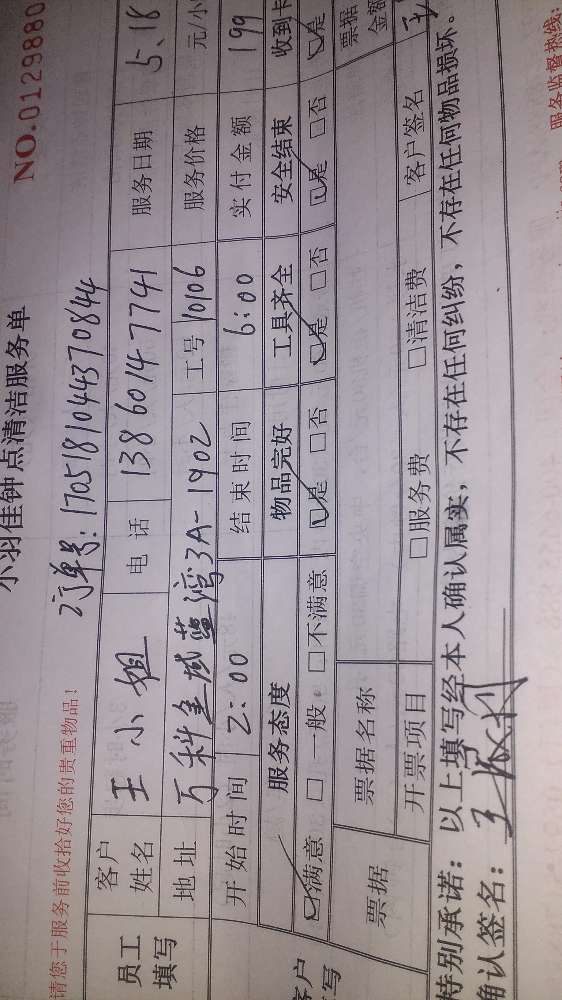 NO.0129880
小羽佳钟点清洁服务单
请您于服务前收拾好您的贵重物品！
订单号：1705181044370844
员工填写 客户姓名 王小姐 电话 13860147741 服务日期 5.18
地址 万科金域蓝湾3A-1902 工号 10106 服务价格 元/小
开始时间 2:00 结束时间 6:00 实付金额 199
服务态度 物品完好 工具齐全 安全结束 收到卡
☑满意 □一般 □不满意 ☑是 □否 ☑是 □否 ☑是 □否 ☑是
票据 票据名称 票据金额
开票项目 □服务费 □清洁费 客户签名
特别承诺：以上填写经本人确认属实，不存在任何纠纷，不存在任何物品损坏。
确认签名：
服务监督热线：